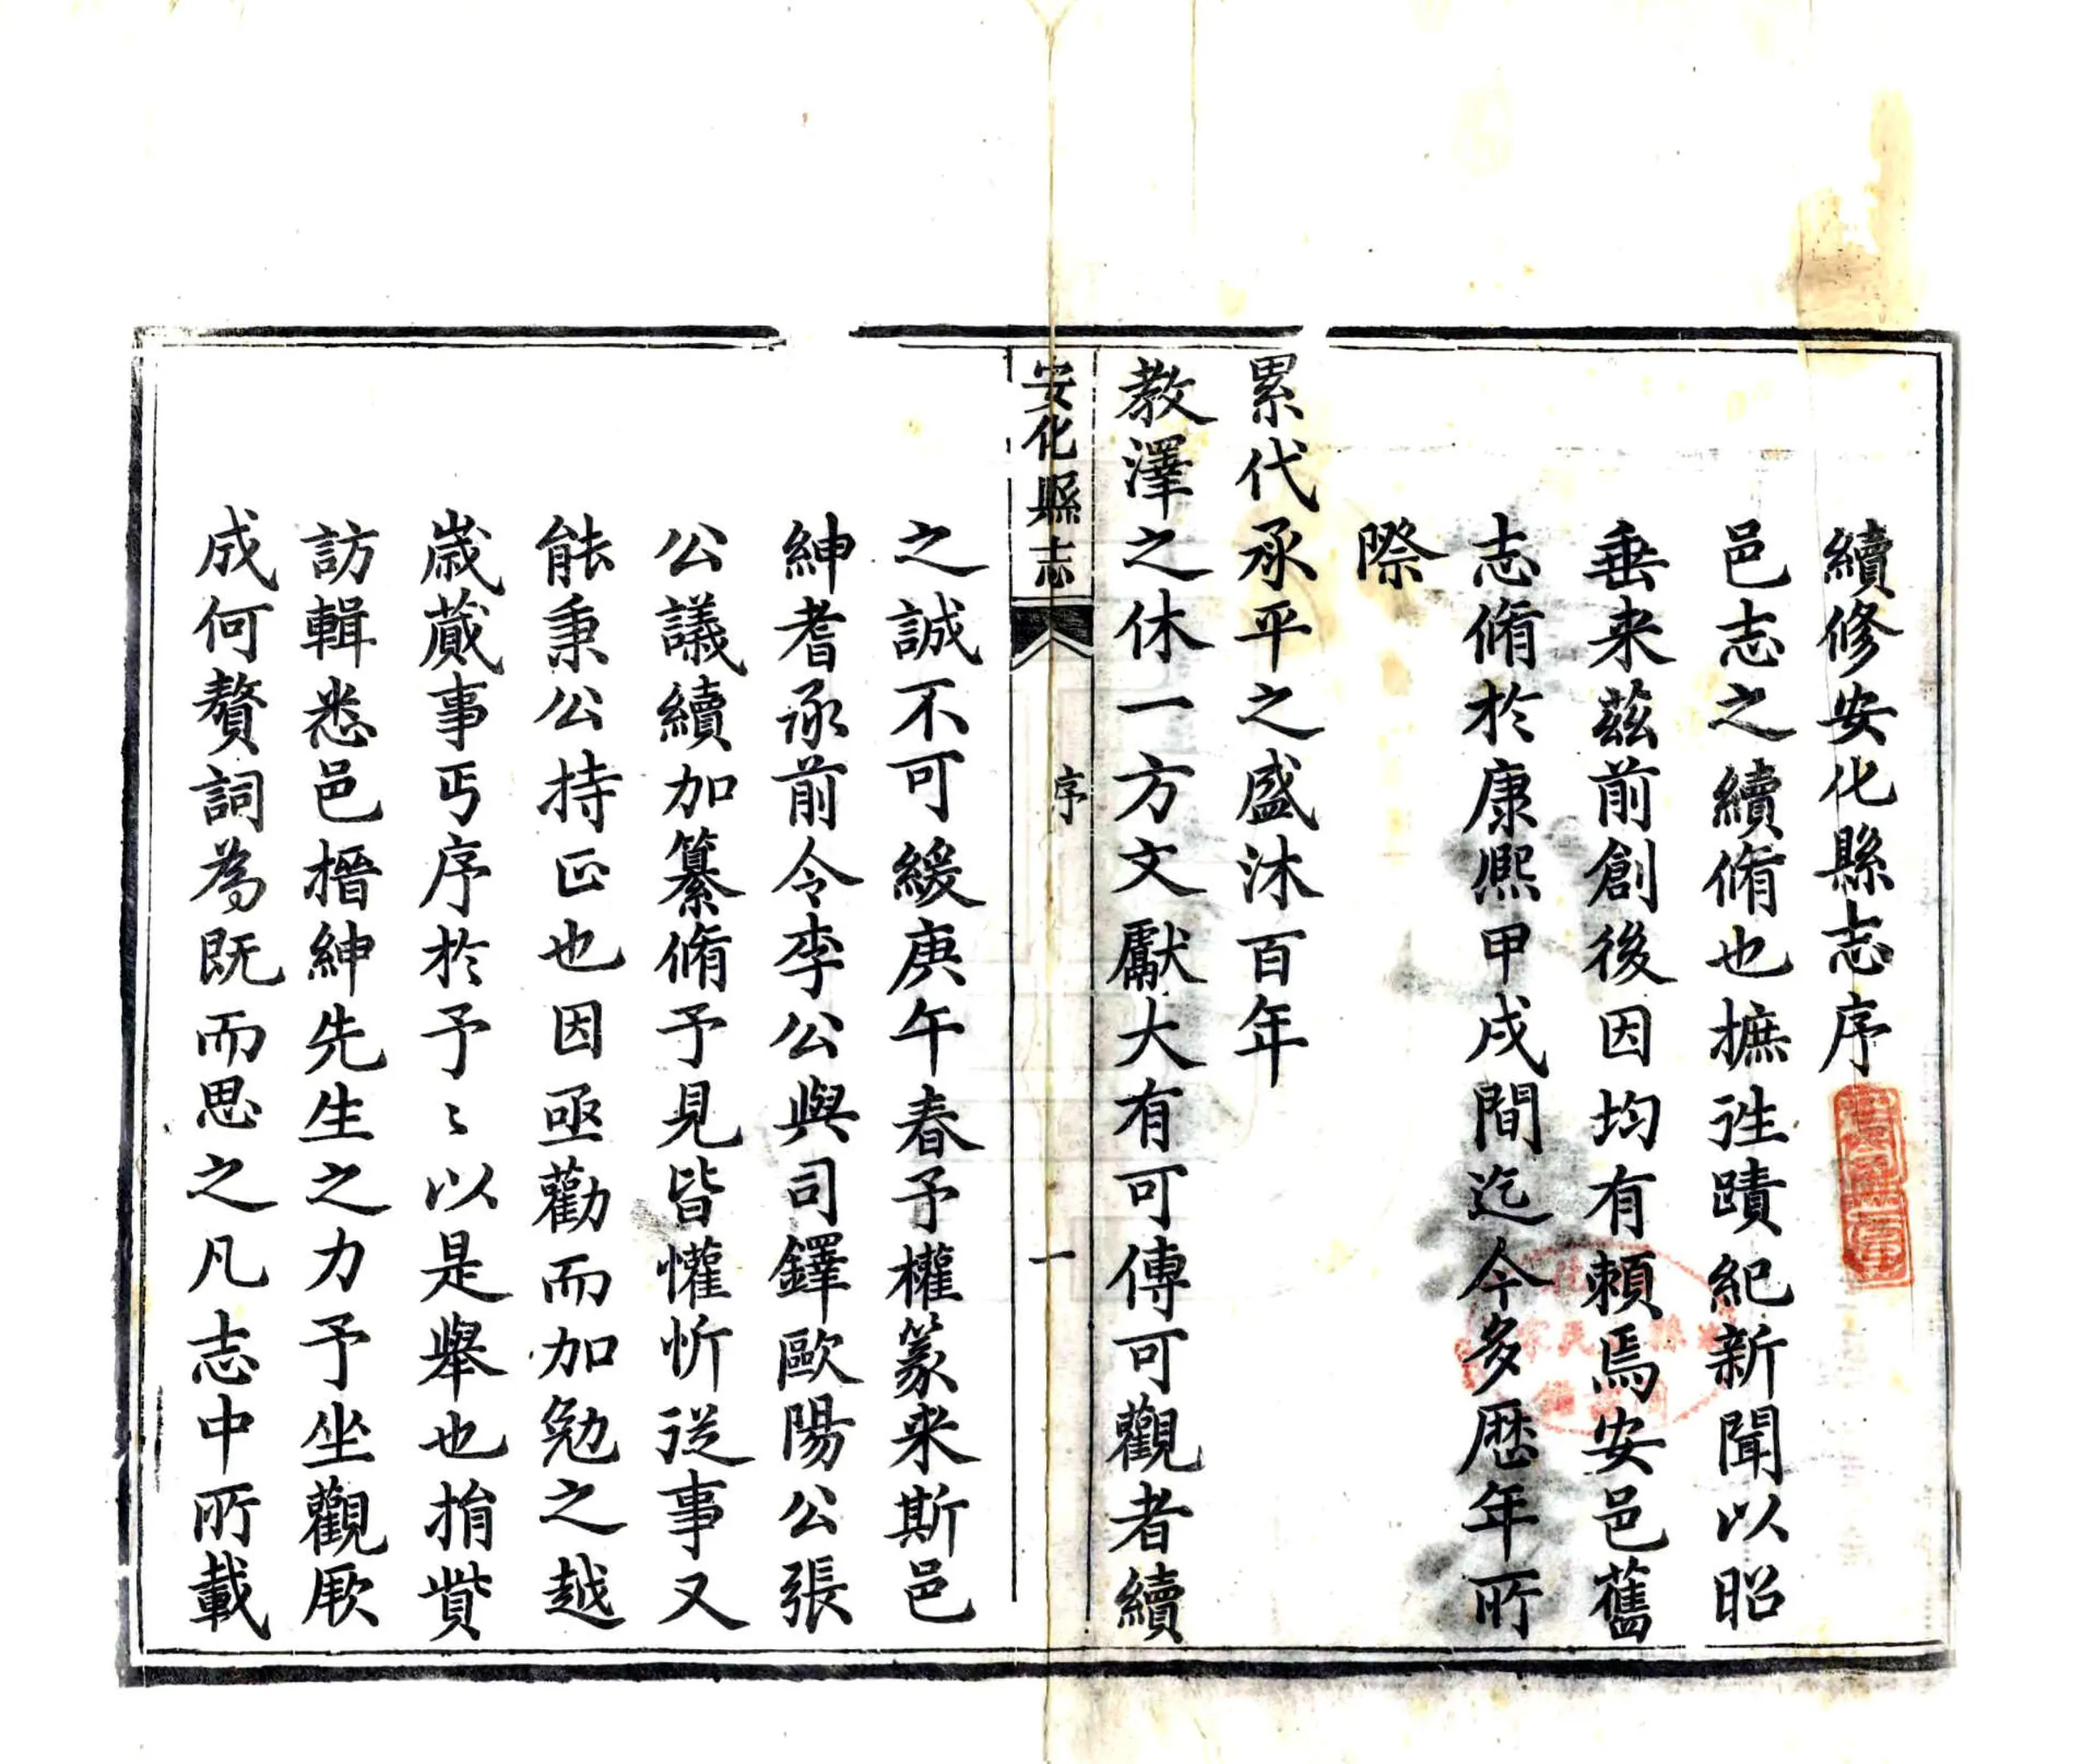 續修安化縣志序
邑志之續脩也摭徃蹟紀新聞以昭
垂来茲前創後因均有頼焉安邑舊
志脩於康熙甲戌間迄今多歴年所
際
累代承平之盛沐百年
教澤之休一方文獻大有可傳可觀者續
安化縣志 序 一
之誠不可緩庚午春予權篆来斯邑
紳耆承前令李公與司鐸歐陽公張
公議續加纂脩予見皆懽忻従事又
能秉公持正也因亟勸而加勉之越
歳蕆事丐序於予〻以是舉也捐貲
訪輯悉邑搢紳先生之力予坐觀厥
成何贅詞為既而思之凡志中所載